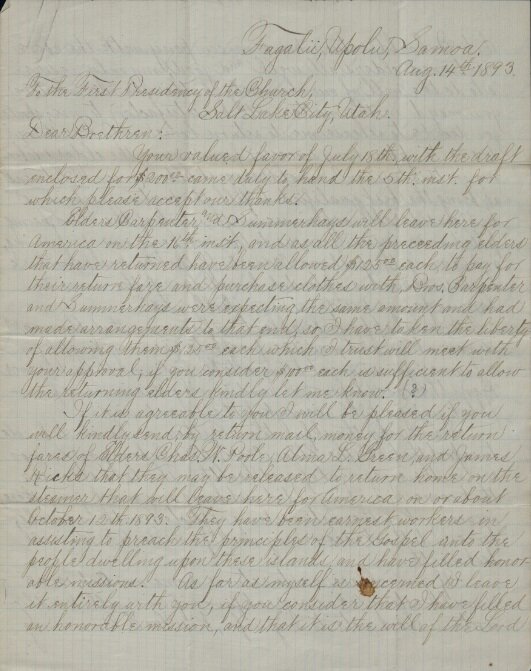 Fagalii, Upolu, Samoa.
Aug. 14th 1893.
To the First Presidency of the Church,
Salt Lake City, Utah.
Dear Brethren:-
Your valued favor of July 18th, with the draft
enclosed for $200.00 came duly to hand the 5th. inst. for
which please accept our thanks.
Elders Carpenter and Summerhays will leave here for
America on the 16th inst, and as all the preceeding elders
that have returned have been allowed $125.00 each, to pay for
their return fare and purchase clothes with, Bros. Carpenter
and Summerhays were expecting the same amount and had
made arrangements to that end, so I have taken the liberty
of allowing them $125.00 each which I trust will meet with
your approval, if you consider each is sufficient to allow
the returning elders kindly let me know. (?)
If it is agreeable to you I will be pleased if you
will kindly send, by return mail, money for the return
fares of Elders Chas. W. Poole, Alma L. Green, and James
Hicks that they may be released to return home on the
steamer that will leave here for America on or about
October 12th 1893. They have been earnest workers in
assisting to preach the principles of the Gospel unto the
people dwelling upon these islands, and have filled honor-
able missions. As far as myself is concerned I leave
it entirely with you, if you consider that I have filled
an honorable mission, and that it is the will of the Lord